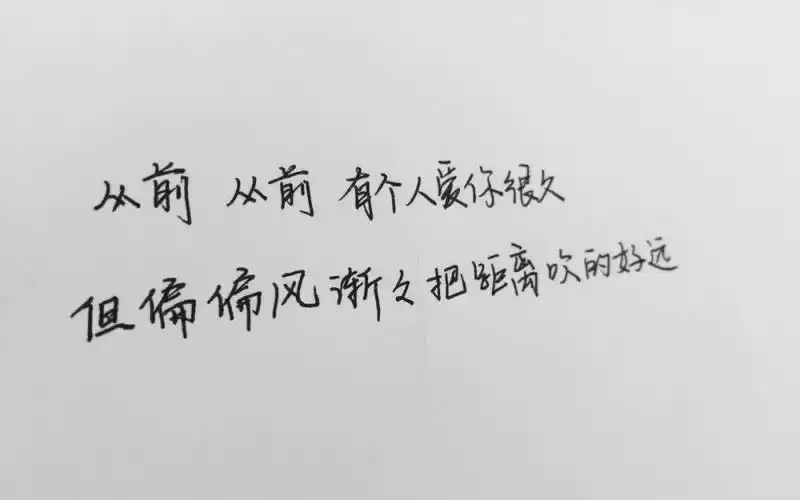 从前 从前 有个人爱你很久
但偏偏风渐々把距离吹的好远